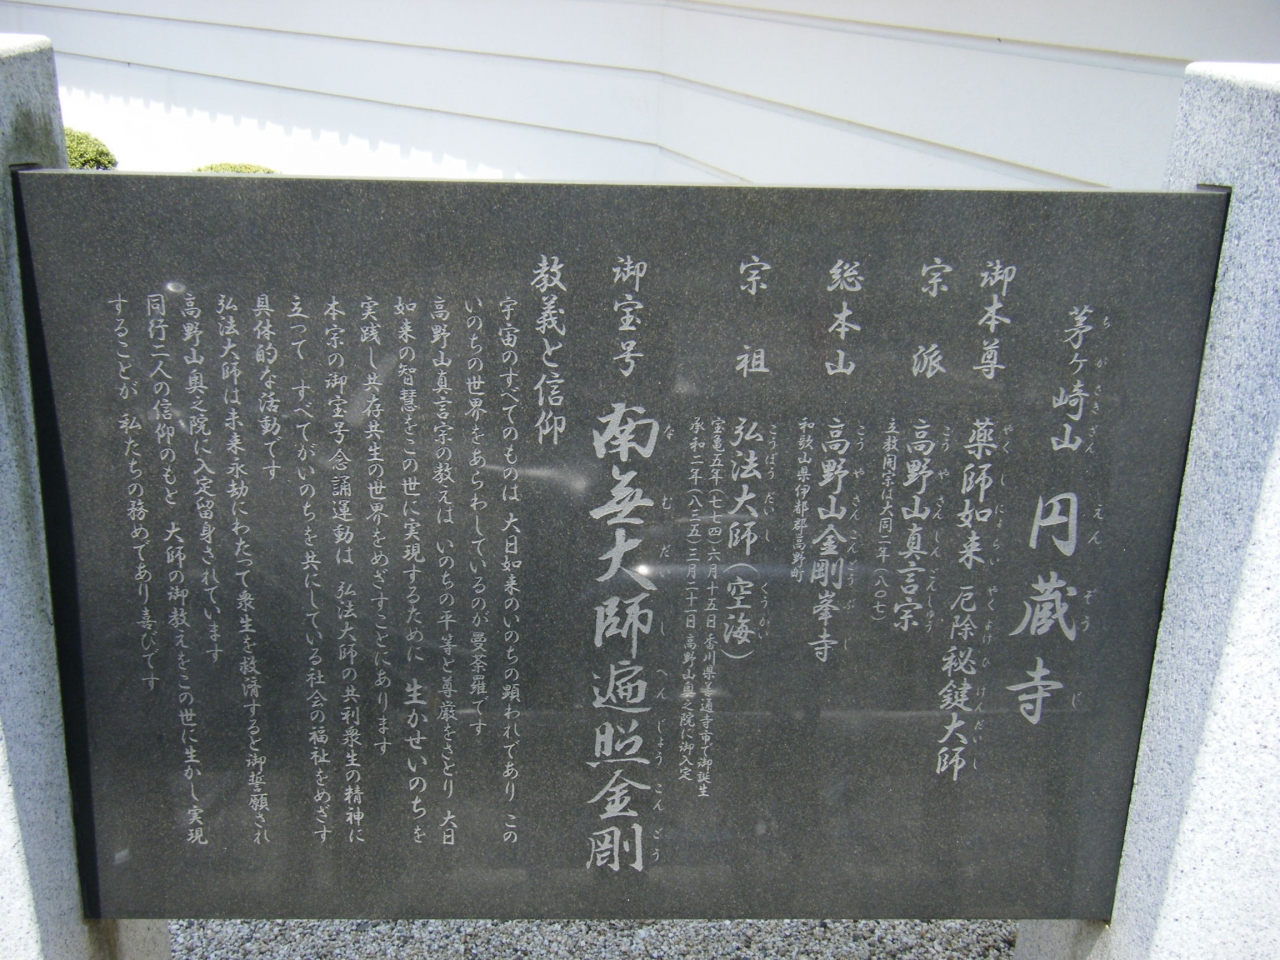 茅ヶ崎山 円蔵寺
ちがさきざん えんぞうじ
御本尊 薬師如来 厄除秘鍵大師
やくしにょらい やくよけひけんだいし
宗派 高野山真言宗
こうやさんしんごんしゅう
立教開宗は大同二年(八〇七)
総本山 高野山金剛峯寺
こうやさんこんごうぶじ
和歌山県伊都郡高野町
宗祖 弘法大師(空海)
こうぼうだいし くうかい
宝亀五年(七七四)六月十五日 香川県善通寺市で御誕生
承和二年(八三五)三月二十一日 高野山奥之院に御入定
御宝号 南無大師遍照金剛
なむだいしへんじょうこんごう
教義と信仰
宇宙のすべてのものは 大日如来のいのちの顕われであり この
いのちの世界をあらわしているのが曼荼羅です
高野山真言宗の教えは いのちの平等と尊厳をさとり 大日
如来の智慧をこの世に実現するために 生かせいのちを
実践し共存共生の世界をめざすことにあります
本宗の御宝号念誦運動は 弘法大師の共利衆生の精神に
立つて すべてがいのちを共にしている社会の福祉をめざす
具体的な活動です
弘法大師は未来永劫にわたって衆生を救済すると御誓願され
高野山奥之院に入定留身されています
同行二人の信仰のもと 大師の御教えをこの世に生かし 実現
することが 私たちの務めであり喜びです